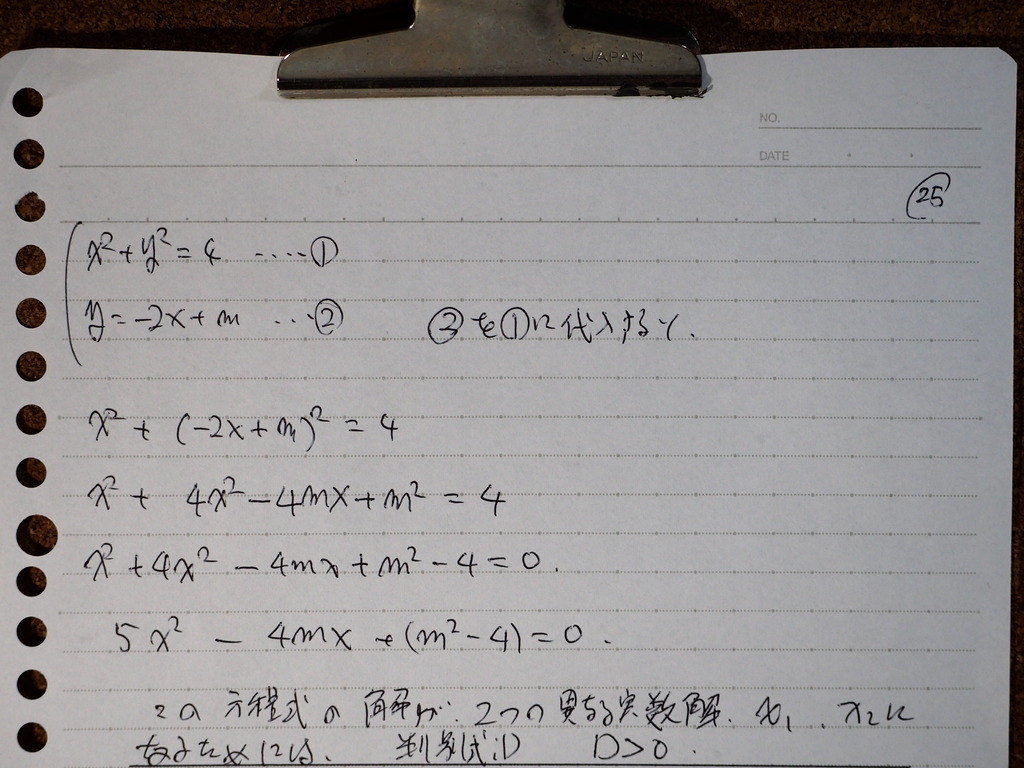 JAPAN
NO.
DATE
25
x²+y²=4 ・・・・・①
y=-2x+m ・・・②　②を①に代入すると、
x²+(-2x+m)²=4
x²+4x²-4mx+m²=4
x²+4x²-4mx+m²-4=0.
5x²-4mx+(m²-4)=0.
この方程式の解が、2つの異なる実数解、x₁、x₂に
なるためには、判別式:D　D>0.